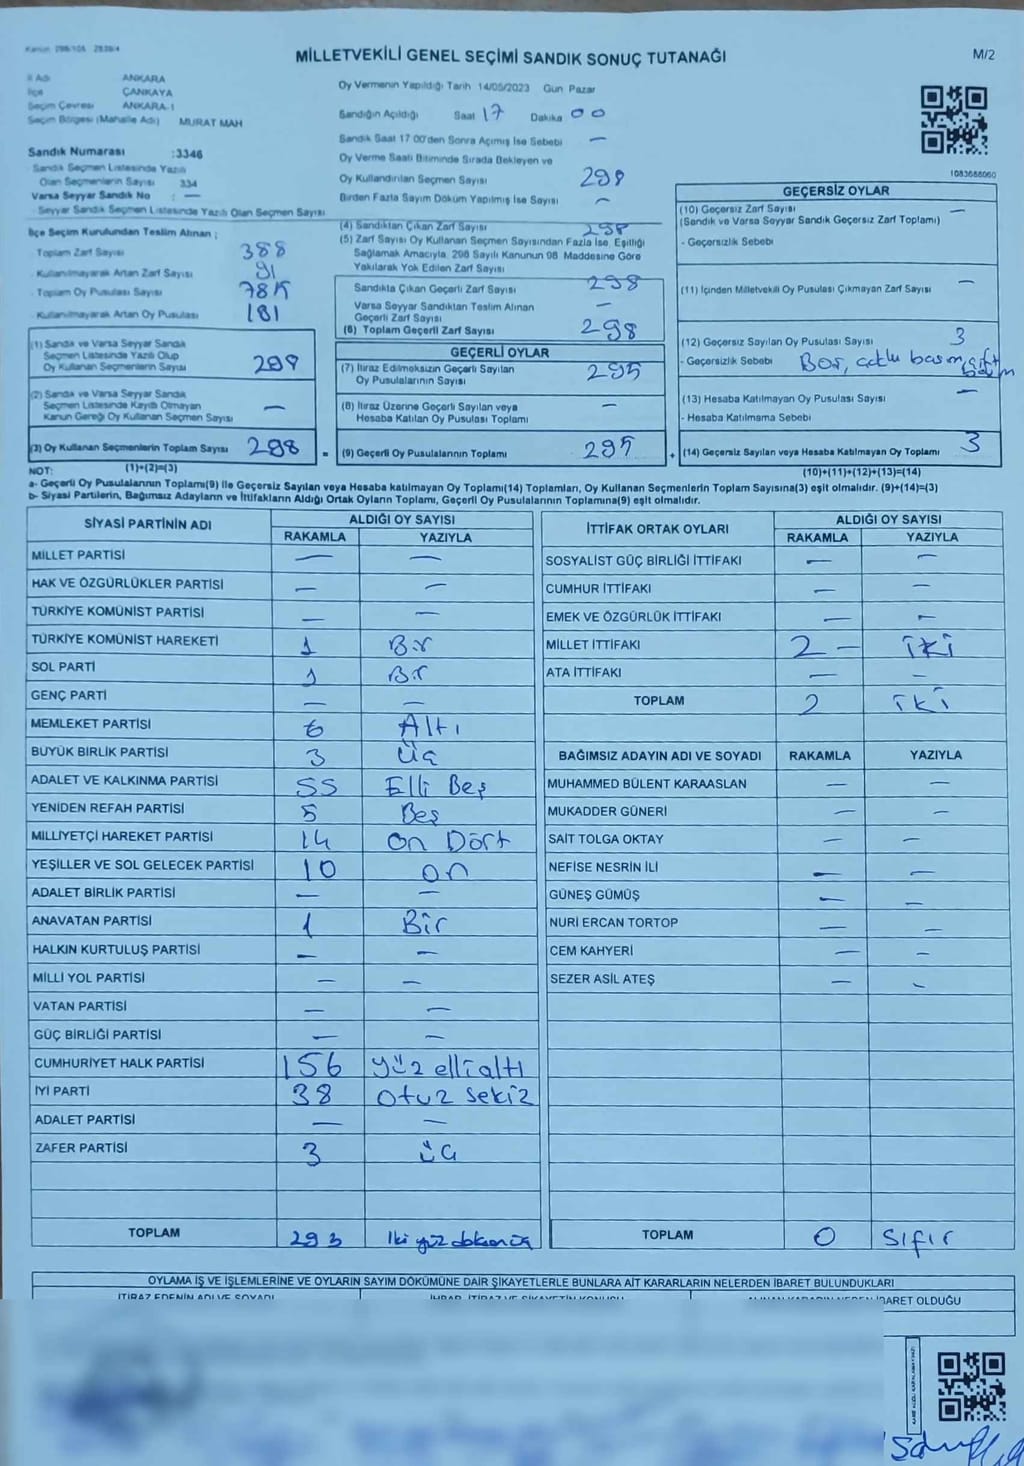 Kanun 298/105 2839/4
MİLLETVEKİLİ GENEL SEÇİMİ SANDIK SONUÇ TUTANAĞI
M/2
İl Adı ANKARA
İlçe ÇANKAYA
Seçim Çevresi ANKARA-1
Seçim Bölgesi (Mahalle Adı) MURAT MAH
Oy Vermenin Yapıldığı Tarih 14/05/2023 Gün Pazar
Sandığın Açıldığı Saat 17 Dakika 00
Sandık Saat 17 00'den Sonra Açımış İse Sebebi —
Oy Verme Saati Bitiminde Sırada Bekleyen ve
Oy Kullandırılan Seçmen Sayısı 298
Birden Fazla Sayım Döküm Yapılmış İse Sayısı —
Sandık Numarası :3346
Sandık Seçmen Listesinde Yazılı
Olan Seçmenlerin Sayısı 334
Varsa Seyyar Sandık No : —
Seyyar Sandık Seçmen Listesinde Yazılı Olan Seçmen Sayısı
İlçe Seçim Kurulundan Teslim Alınan ;
Toplam Zarf Sayısı 388
Kullanılmayarak Artan Zarf Sayısı 91
Toplam Oy Pusulası Sayısı
Kullanılmayarak Artan Oy Pusulası 181
(1) Sandık ve Varsa Seyyar Sandık
Seçmen Listesinde Yazılı Olup
Oy Kullanan Seçmenlerin Sayısı 298
(2) Sandık ve Varsa Seyyar Sandık
Seçmen Listesinde Kayıtlı Olmayan
Kanun Gereği Oy Kullanan Seçmen Sayısı —
(3) Oy Kullanan Seçmenlerin Toplam Sayısı 298
(4) Sandıktan Çıkan Zarf Sayısı 298
(5) Zarf Sayısı Oy Kullanan Seçmen Sayısından Fazla İse, Eşitliği
Sağlamak Amacıyla, 298 Sayılı Kanunun 98 Maddesine Göre
Yakılarak Yok Edilen Zarf Sayısı
Sandıkta Çıkan Geçerli Zarf Sayısı 298
Varsa Seyyar Sandıktan Teslim Alınan
Geçerli Zarf Sayısı —
(6) Toplam Geçerli Zarf Sayısı 298
GEÇERLİ OYLAR
(7) İtiraz Edilmeksizin Geçerli Sayılan
Oy Pusulalarının Sayısı 295
(8) İtiraz Üzerine Geçerli Sayılan veya
Hesaba Katılan Oy Pusulası Toplamı —
= (9) Geçerli Oy Pusulalarının Toplamı 295
1083688060
GEÇERSİZ OYLAR
(10) Geçersiz Zarf Sayısı —
(Sandık ve Varsa Seyyar Sandık Geçersiz Zarf Toplamı)
- Geçersizlik Sebebi
(11) İçinden Milletvekili Oy Pusulası Çıkmayan Zarf Sayısı —
(12) Geçersiz Sayılan Oy Pusulası Sayısı 3
- Geçersizlik Sebebi Boş,
(13) Hesaba Katılmayan Oy Pusulası Sayısı —
- Hesaba Katılmama Sebebi
+ (14) Geçersiz Sayılan veya Hesaba Katılmayan Oy Toplamı 3
NOT: (1)+(2)=(3)
(10)+(11)+(12)+(13)=(14)
a- Geçerli Oy Pusulalarının Toplamı(9) ile Geçersiz Sayılan veya Hesaba katılmayan Oy Toplamı(14) Toplamları, Oy Kullanan Seçmenlerin Toplam Sayısına(3) eşit olmalıdır. (9)+(14)=(3)
b- Siyasi Partilerin, Bağımsız Adayların ve İttifakların Aldığı Ortak Oyların Toplamı, Geçerli Oy Pusulalarının Toplamına(9) eşit olmalıdır.
SİYASİ PARTİNİN ADI ALDIĞI OY SAYISI
RAKAMLA YAZIYLA
MİLLET PARTİSİ — —
HAK VE ÖZGÜRLÜKLER PARTİSİ — —
TÜRKİYE KOMÜNİST PARTİSİ — —
TÜRKİYE KOMÜNİST HAREKETİ 1 Bir
SOL PARTİ 1 Bir
GENÇ PARTİ — —
MEMLEKET PARTİSİ 6 Altı
BÜYÜK BİRLİK PARTİSİ 3 Üç
ADALET VE KALKINMA PARTİSİ 55 Elli Beş
YENİDEN REFAH PARTİSİ 5 Beş
MİLLİYETÇİ HAREKET PARTİSİ 14 On Dört
YEŞİLLER VE SOL GELECEK PARTİSİ 10 on
ADALET BİRLİK PARTİSİ — —
ANAVATAN PARTİSİ 1 Bir
HALKIN KURTULUŞ PARTİSİ — —
MİLLİ YOL PARTİSİ — —
VATAN PARTİSİ — —
GÜÇ BİRLİĞİ PARTİSİ — —
CUMHURİYET HALK PARTİSİ 156 yüz elli altı
İYİ PARTİ 38 otuz sekiz
ADALET PARTİSİ — —
ZAFER PARTİSİ 3 üç
TOPLAM 293 İki yüz doksan üç
İTTİFAK ORTAK OYLARI ALDIĞI OY SAYISI
RAKAMLA YAZIYLA
SOSYALİST GÜÇ BİRLİĞİ İTTİFAKI — —
CUMHUR İTTİFAKI — —
EMEK VE ÖZGÜRLÜK İTTİFAKI — —
MİLLET İTTİFAKI 2 — iki
ATA İTTİFAKI — —
TOPLAM 2 iki
BAĞIMSIZ ADAYIN ADI VE SOYADI RAKAMLA YAZIYLA
MUHAMMED BÜLENT KARAASLAN — —
MUKADDER GÜNERİ — —
SAİT TOLGA OKTAY — —
NEFİSE NESRİN İLİ — —
GÜNEŞ GÜMÜŞ — —
NURİ ERCAN TORTOP — —
CEM KAHYERİ — —
SEZER ASİL ATEŞ — —
TOPLAM 0 Sıfır
OYLAMA İŞ VE İŞLEMLERİNE VE OYLARIN SAYIM DÖKÜMÜNE DAİR ŞİKAYETLERLE BUNLARA AİT KARARLARIN NELERDEN İBARET BULUNDUKLARI
İTİRAZ EDENİN ADI VE SOYADI İHBAR, İTİRAZ VE ŞİKAYETİN KONUSU ALINAN KARARIN NEDEN İBARET OLDUĞU